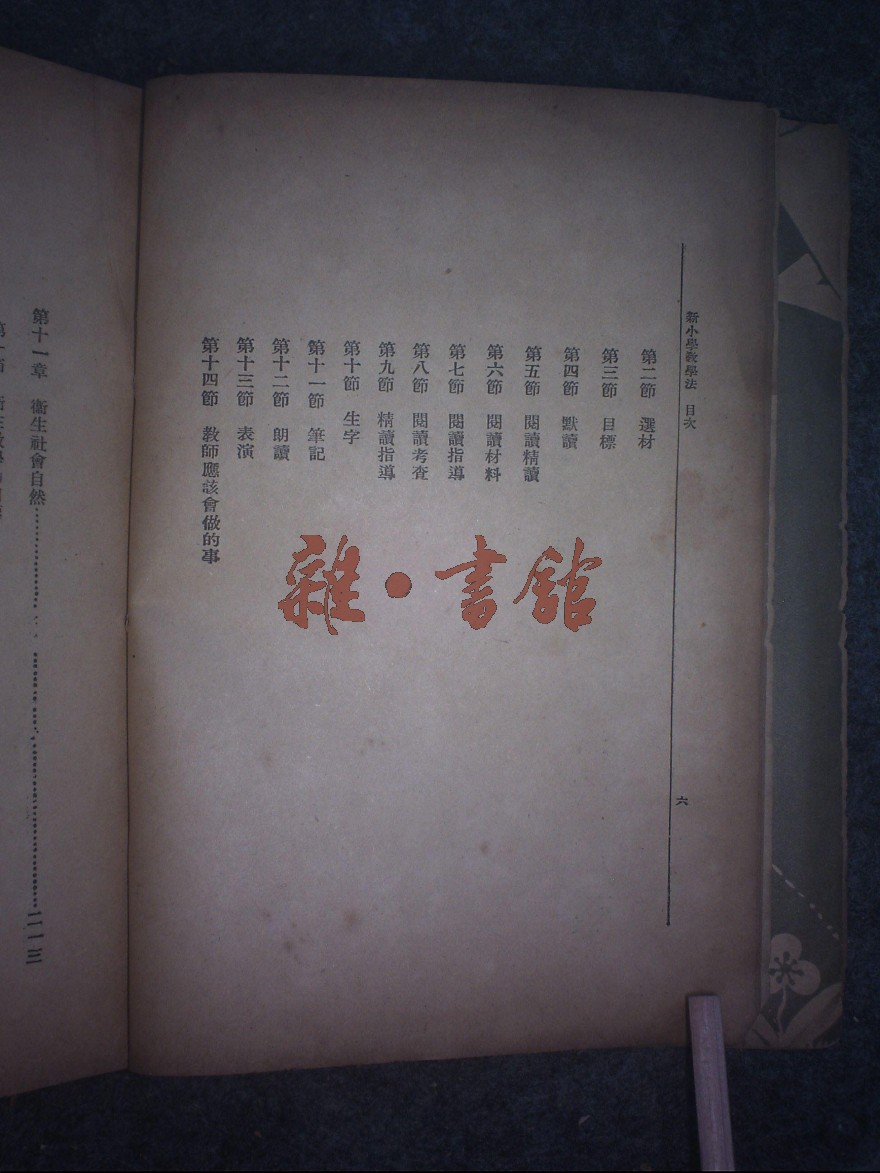 新小學教學法 目次
六
第二節 選材
第三節 目標
第四節 默讀
第五節 閱讀精讀
第六節 閱讀材料
第七節 閱讀指導
第八節 閱讀考查
第九節 精讀指導
第十節 生字
第十一節 筆記
第十二節 朗讀
第十三節 表演
第十四節 教師應該會做的事
雜·書館
第十一章 衞生社會自然……二一三